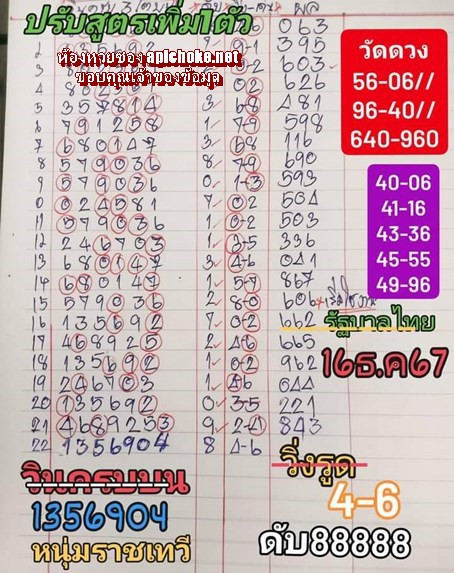 ปรับสูตรเพิ่ม1ตัว
ห้องหวยซอง apichoke.net
ขอบคุณเจ้าของข้อมูล
063
2 395
3 0-2 603 ✓
4 02 226
5 357814 3 ✓ 68 481
6 791258 1 ✓ 79 598
7 680147 3 ✓ 58 116
8 579036 8 ✓ 79 690
9 579036 0 ✓ 1-3 593
0 024581 7 ✓ 0-2 504
11 579036 1 ✓ 0-2 503
12 246703 1 ✓ 3-5 336
13 680147 3 ✓ 4-6 041
14 680147 1 ✓ 5-7 867
15 579036 2 ✓ 8-0 606
16 135692 7 ✓ 0-2 662
17 468925 2 ✓ 4-6 665
18 135692 1 ✓ 0-2 962
19 246703 1 ✓ 46 044
20 135692 0 ✓ 3-5 221
21 4689253 9 ✓ 2-4 843
22 1356904 8 4-6
วัดดวง
56-06//
96-40//
640-960
40-06
41-16
43-36
45-55
49-96
รัฐบาลไทย
16ธ.ค67
วินครบบน
1356904
หนุ่มราชเทวี
วิ่งรูด
4-6
ดับ88888